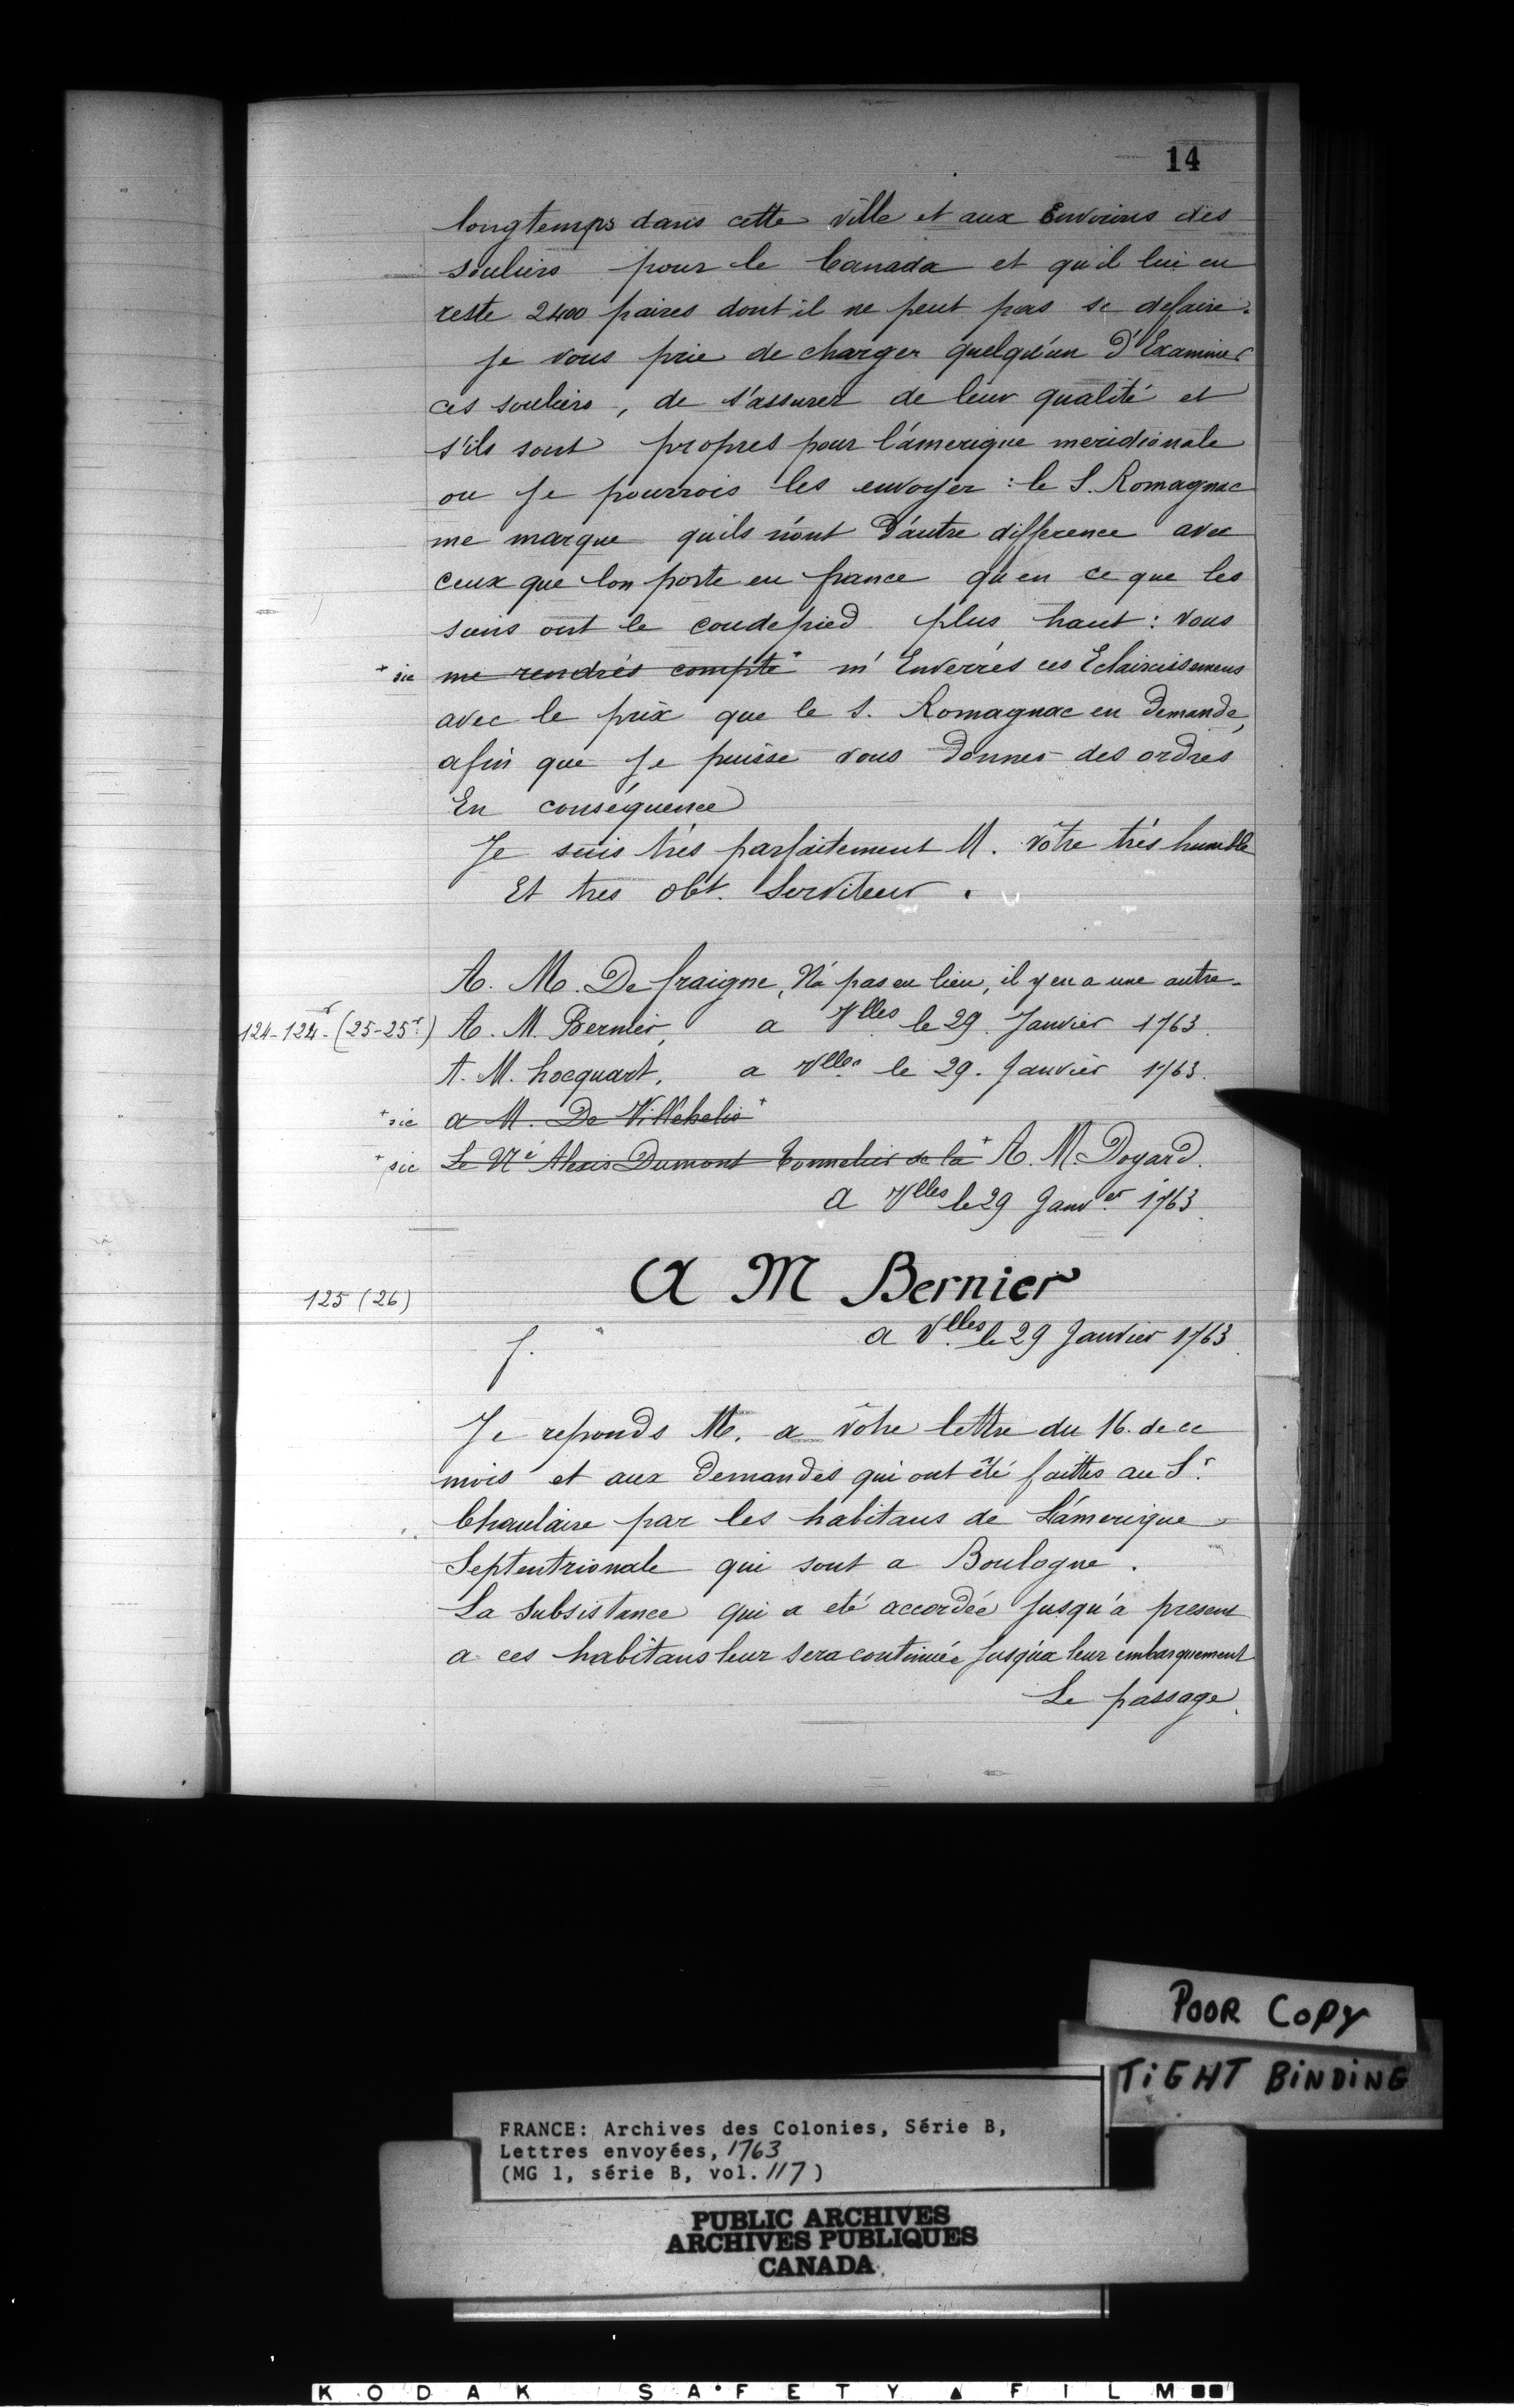 14
longtemps dans cette ville et aux Environs des
souliers pour le Canada et qu'il lui en
reste 2400 paires dont il ne peut pas se defaire.
Je vous prie de charger quelqu'un D'Examiner
ces souliers, de s'assurer de leur qualité et
s'ils sont propres pour l'amerique meridionale
ou Je pourrois les envoyer : le S. Romagnac
me marque qu'ils n'ont D'autre difference avec
ceux que lon porte en france qu'en ce que les
siens ont le coudepied plus haut : vous
+ sic ~~me rendrés compte~~ + m'Enverrés ces Eclaircissemens
avec le prix que le S. Romagnac en Demande,
afin que Je puisse vous Donner des ordres
En conséquence
Je suis trés parfaitement M. vôtre trés humble
Et tres obt. Serviteur.
A. M. De fraigne, N'a pas eu lieu, il y en a une autre.
124-124v- (25-25v) A. M. Bernier, a Vlles le 29. Janvier 1763.
A. M. hocquart, a Vlles le 29. Janvier 1763.
+ sic ~~a M. De Villehelio~~ +
+ sic ~~Le Né Alexis Dumont Tonnelier de la~~ + A. M. Doyard.
a Vlles le 29 Janver 1763.
A M Bernier
125 (26)
a Vlles le 29 Janvier 1763.
f.
Je reponds M. a vôtre lettre du 16. de ce
mois et aux Demandes qui ont été faittes au Sr
Chaulaire par les habitans de L'amerique
Septentrionale qui sont a Boulogne.
La subsistance qui a eté accordée Jusqu'a present
a ces habitans leur sera continuée Jusqu'a leur embarquement
Le passage
POOR COPY
TIGHT BINDING
FRANCE: Archives des Colonies, Série B,
Lettres envoyées, 1763
(MG 1, série B, vol. 117)
PUBLIC ARCHIVES
ARCHIVES PUBLIQUES
CANADA
KODAK SAFETY FILM